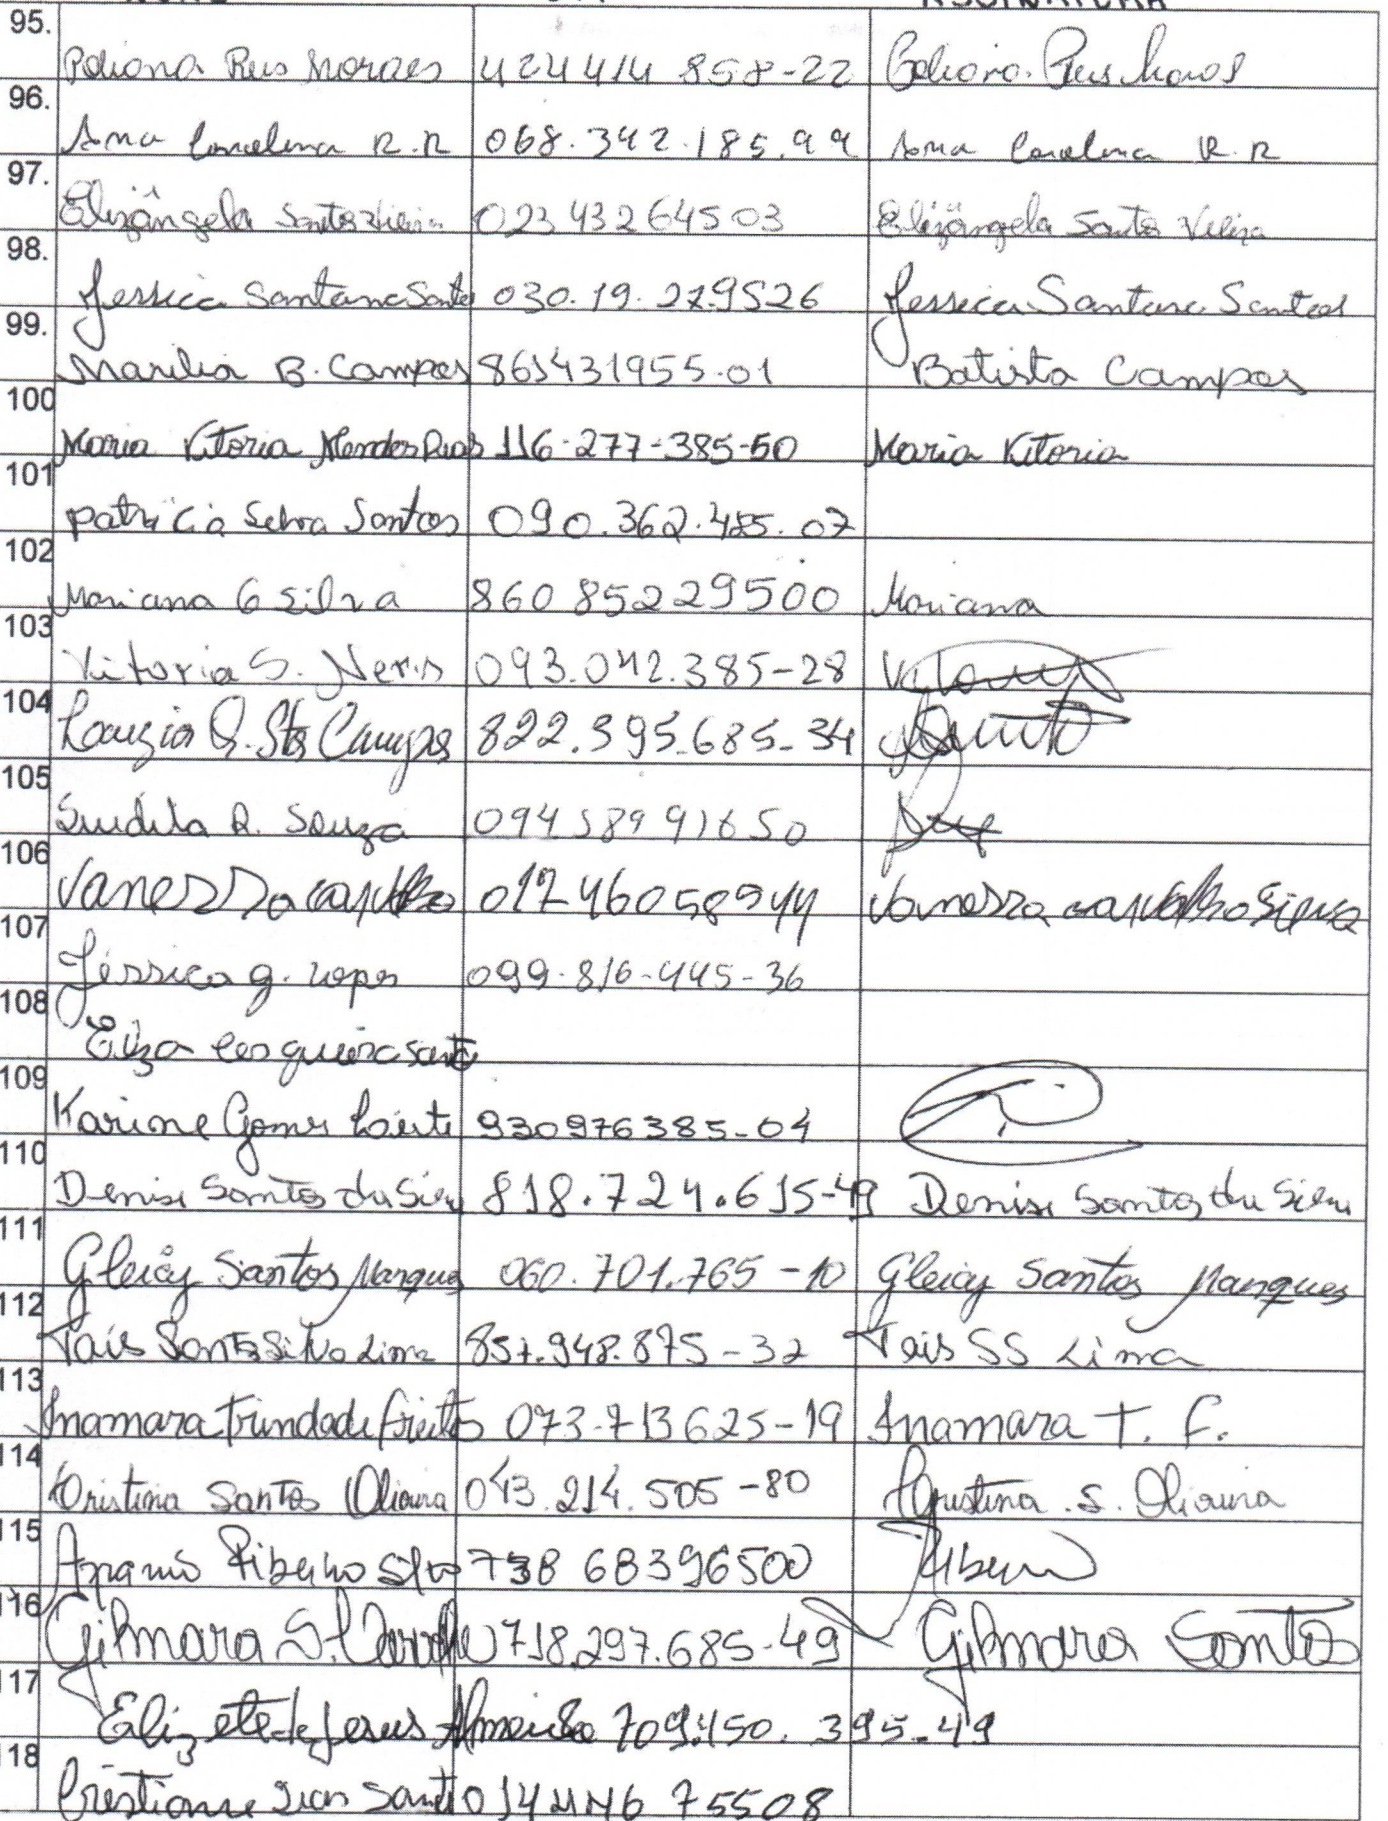 95.
Poliana Reis Moraes 424414 858-22 Poliana Reis Moraes
96.
Ana Carolina R.R 068.342.185.99 Ana Carolina R.R
97.
Elizângela Santos Vieira 023 432 645 03 Elizângela Santos Vieira
98.
Jessica Santana Santos 030.19.279526 Jessica Santana Santos
99.
Marilia B. Campos 861431955-01 Batista Campos
100
Maria Vitoria Mendes 116-277-385-50 Maria Vitoria
101
Patricia Silva Santos 090.362.485.07
102
Mariana G Silva 860 85229500 Mariana
103
Vitoria S. Neris 093.042.385-28
104
S. Sts Campos 822.395.685-34
105
R. Souza 094 589 91650
106
Vanessa Carvalho 012 460 589 44 Vanessa Carvalho
107
Jéssica G. Lopes 099-816-445-36
108
Elza Cerqueira Santo
109
Karine Gomes 930976385-04
110
Denise Santos da Silva 818.724.615-49 Denise Santos da Silva
111
Gleicy Santos Marques 060.701.765-10 Gleicy Santos Marques
112
Tais Santos Silva Lima 857.948.875-32 Tais SS Lima
113
Inamara Trindade Freitas 073-713625-19 Inamara T. F.
114
Cristina Santos Oliveira 043.214.505-80 Cristina S. Oliveira
115
Ribeiro Silva 738 68396500 Ribeiro
116
Gilmara S. 718.297.685-49 Gilmara Santos
117
Elizete de Jesus Almeida 709.450.395-49
118
Cristiane Dias Santo 014 75508